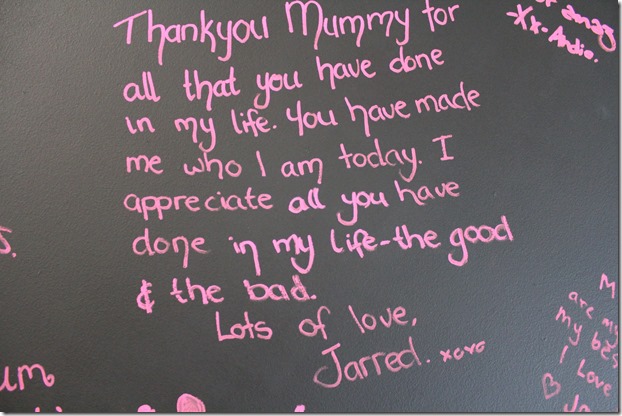 Thankyou Mummy for
all that you have done
in my life. You have made
me who I am today. I
appreciate all you have
done in my life-the good
& the bad.
Lots of love,
Jarred. xoxo
xx-Andie.
M
are my
my bes
I Love
um